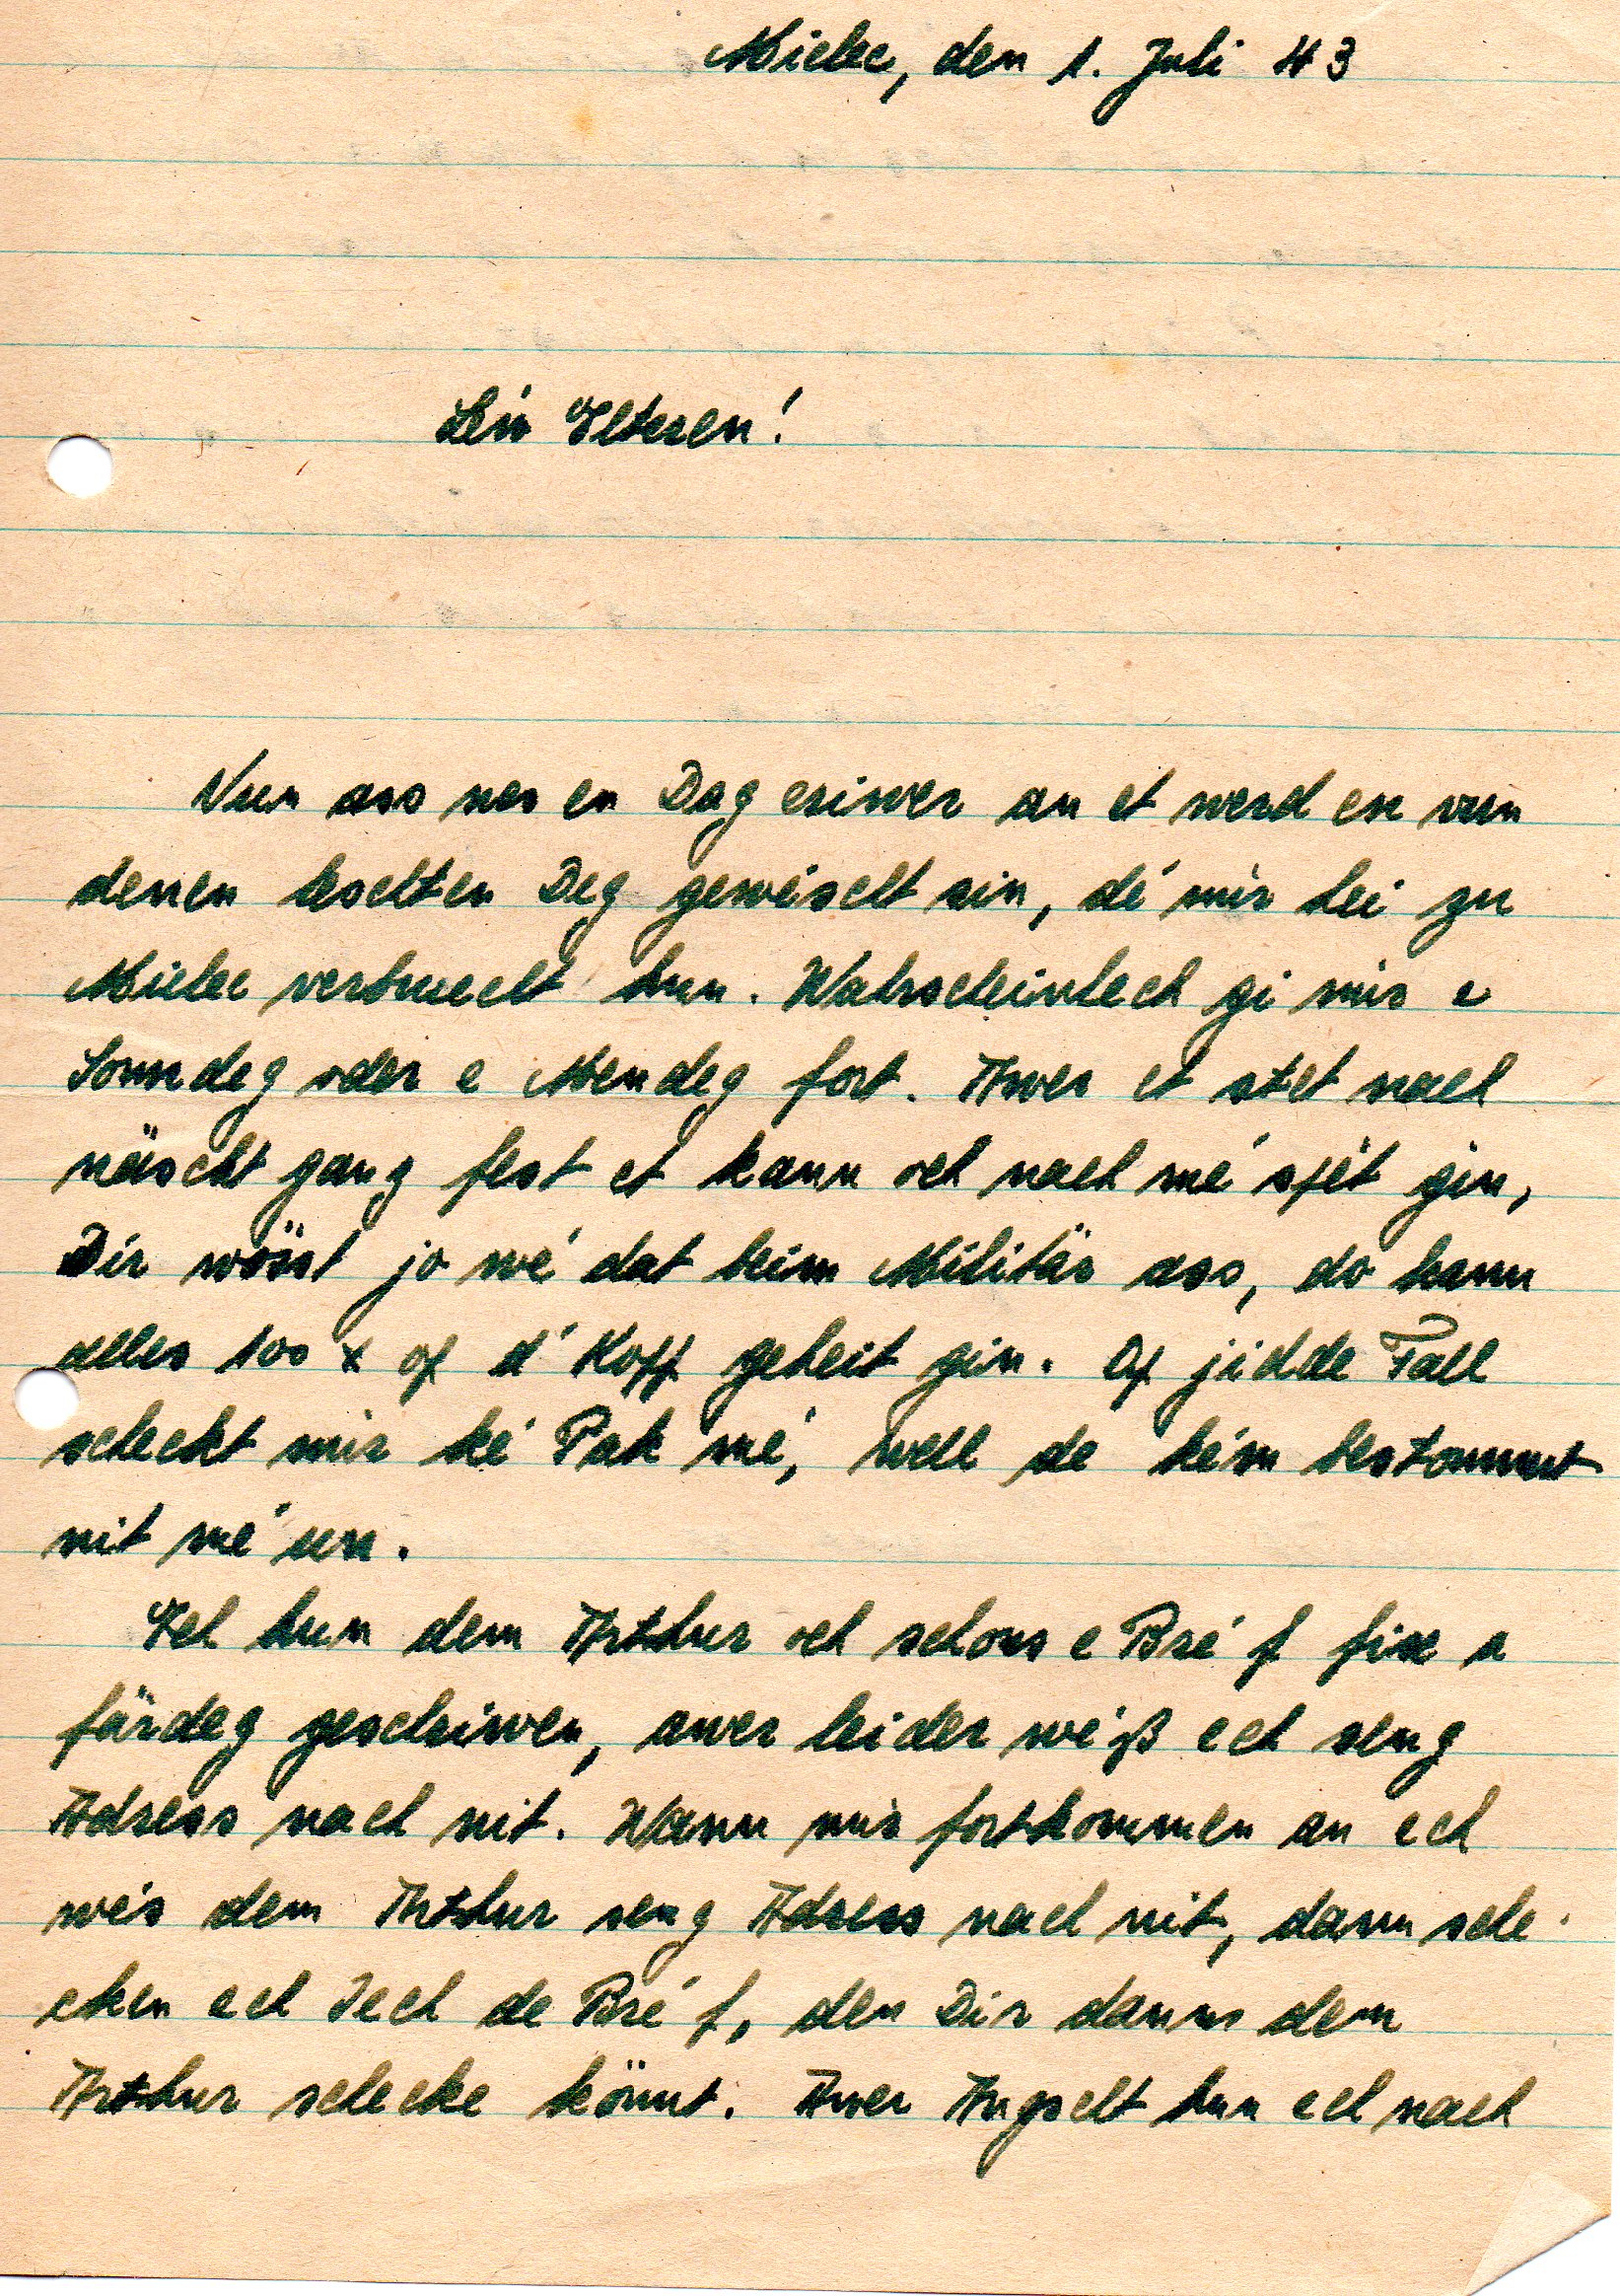 Mielec, den 1. Juli 43
Léiw Elteren!
Nun ass nes en Dag eriwer an et werd en vun
denen leschten Deg geweischt sin, dé mir hei zu
Mielec verbruecht hun. Wahrscheinlech gi mir e
Sonndeg oder e Mendeg fort. Awer et stet nach
näischt ganz fest et kann och nach mé spét gin,
Dir wösst jo wé dat beim Militär ass, do kann
alles 100 x op d'Kopp geheit gin. Op jidde Fall
scheckt mir ké Pak mé, well de kém bestommt
nit mé un.
Ech hun dem Arthur och schons e Bréf fix a
färdeg geschriwen, awer leider wéß ech seng
Adress nach nit. Wann mir fortkommen an ech
wés dem Arthur seng Adress nach nit, dann sche-
cken ech Iech de Bréf, den Dir dann dem
Arthur schecke könnt. Awer Angscht hun ech nach